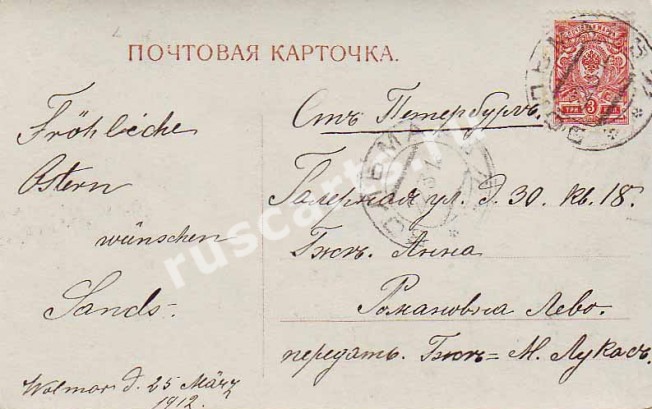 ПОЧТОВАЯ КАРТОЧКА.
Fröhliche
Ostern
wünschen
Sands.
Wolmar d. 25 März
1912.
Стъ Петербургъ.
Галерная ул. д. 30. кв. 18.
Анна
Романовна Лево.
передать. М. Лукасъ.
3
ruscarts.ru